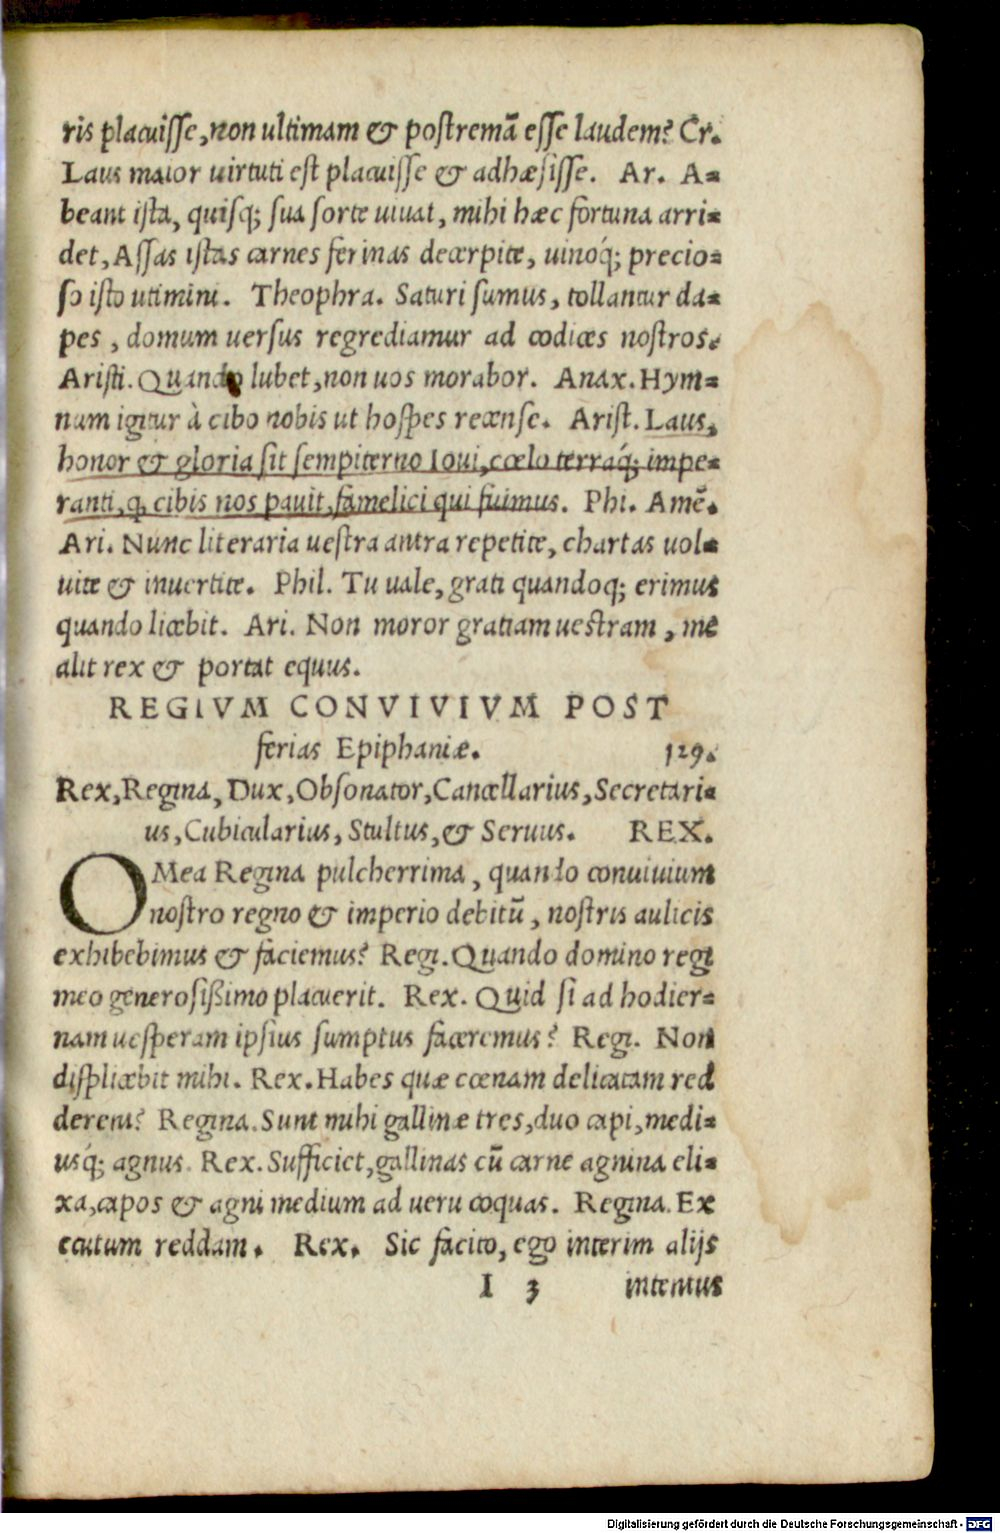 ris placuisse, non ultimam & postremā esse laudem? Cr.
Laus maior uirtuti est placuisse & adhæsisse. Ar. A-
beant ista, quisq; sua sorte uiuat, mihi hæc fortuna arri-
det, Assas istas carnes ferinas decerpite, uinoq́; precio-
so isto utimini. Theophra. Saturi sumus, tollantur da-
pes, domum uersus regrediamur ad codices nostros.
Aristi. Quando lubet, non uos morabor. Anax. Hym-
num igitur à cibo nobis ut hospes recense. Arist. Laus,
honor & gloria sit sempiterno Ioui, cœlo terraq́; impe-
ranti, q̃ cibis nos pauit, famelici qui fuimus. Phi. Amē.
Ari. Nunc literaria uestra antra repetite, chartas uol-
uite & inuertite. Phil. Tu uale, grati quandoq; erimus
quando licebit. Ari. Non moror gratiam uestram, me
alit rex & portat equus.
REGIVM CONVIVIVM POST
ferias Epiphaniæ. 129.
Rex, Regina, Dux, Obsonator, Cancellarius, Secretari-
us, Cubicularius, Stultus, & Seruus. REX.
O Mea Regina pulcherrima, quando conuiuium
nostro regno & imperio debitū, nostris aulicis
exhibebimus & faciemus? Regi. Quando domino regi
meo generosißimo placuerit. Rex. Quid si ad hodier-
nam uesperam ipsius sumptus faceremus? Regi. Non
displicebit mihi. Rex. Habes quæ cœnam delicatam red
derent? Regina. Sunt mihi gallinæ tres, duo capi, medi-
usq́; agnus. Rex. Sufficiet, gallinas cū carne agnina eli-
xa, capos & agni medium ad ueru coquas. Regina. Ex
ecutum reddam. Rex. Sic facito, ego interim alijs
I 3 intentus
Digitalisierung gefördert durch die Deutsche Forschungsgemeinschaft - DFG